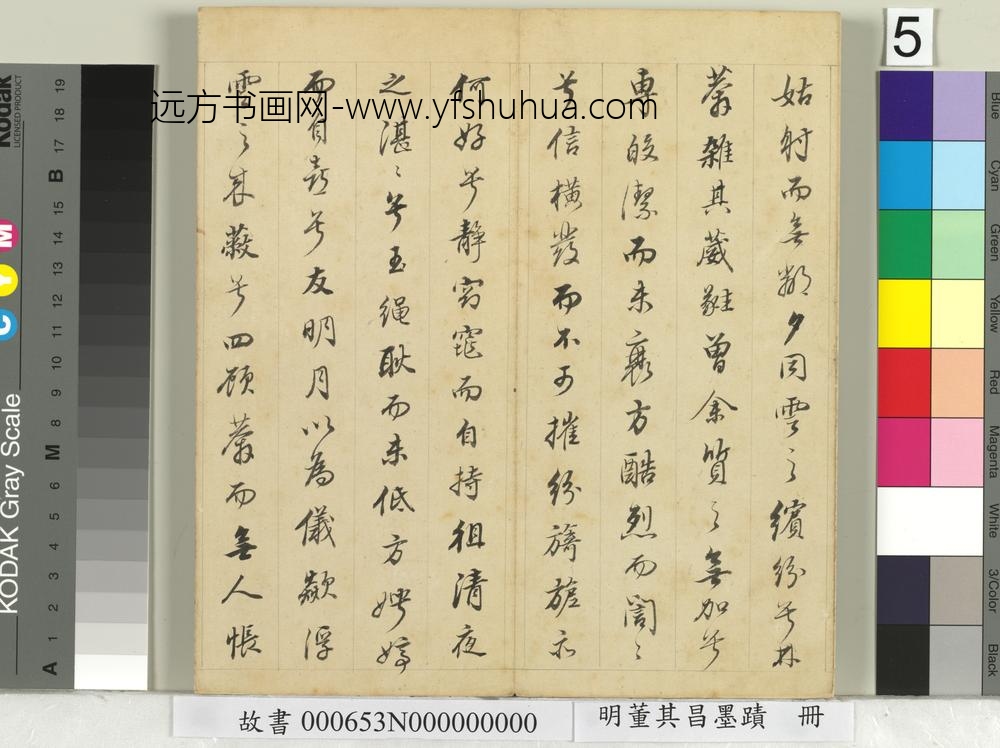 姑射而無鄰夕同雲之繽紛兮林
薄雜其葳蕤曾余質之無加兮
專皎潔而未衰方酷烈而誾〻
兮信橫發而不可摧紛旖旎亦
何好兮靜窈窕而自持徂清夜
之湛〻兮玉繩耿而未低方娉婷
而自喜兮友明月以為儀飄浮
雲之來蔽兮四顧莽而無人悵
远方书画网-www.yfshuhua.com
5
Kodak
LICENSED PRODUCT
KODAK Gray Scale
C Y M
A 1 2 3 4 5 6 M 8 9 10 11 12 13 14 15 B 17 18 19
Blue
Cyan
Green
Yellow
Red
Magenta
White
3/Color
Black
故書 000653N000000000
明董其昌墨蹟 冊